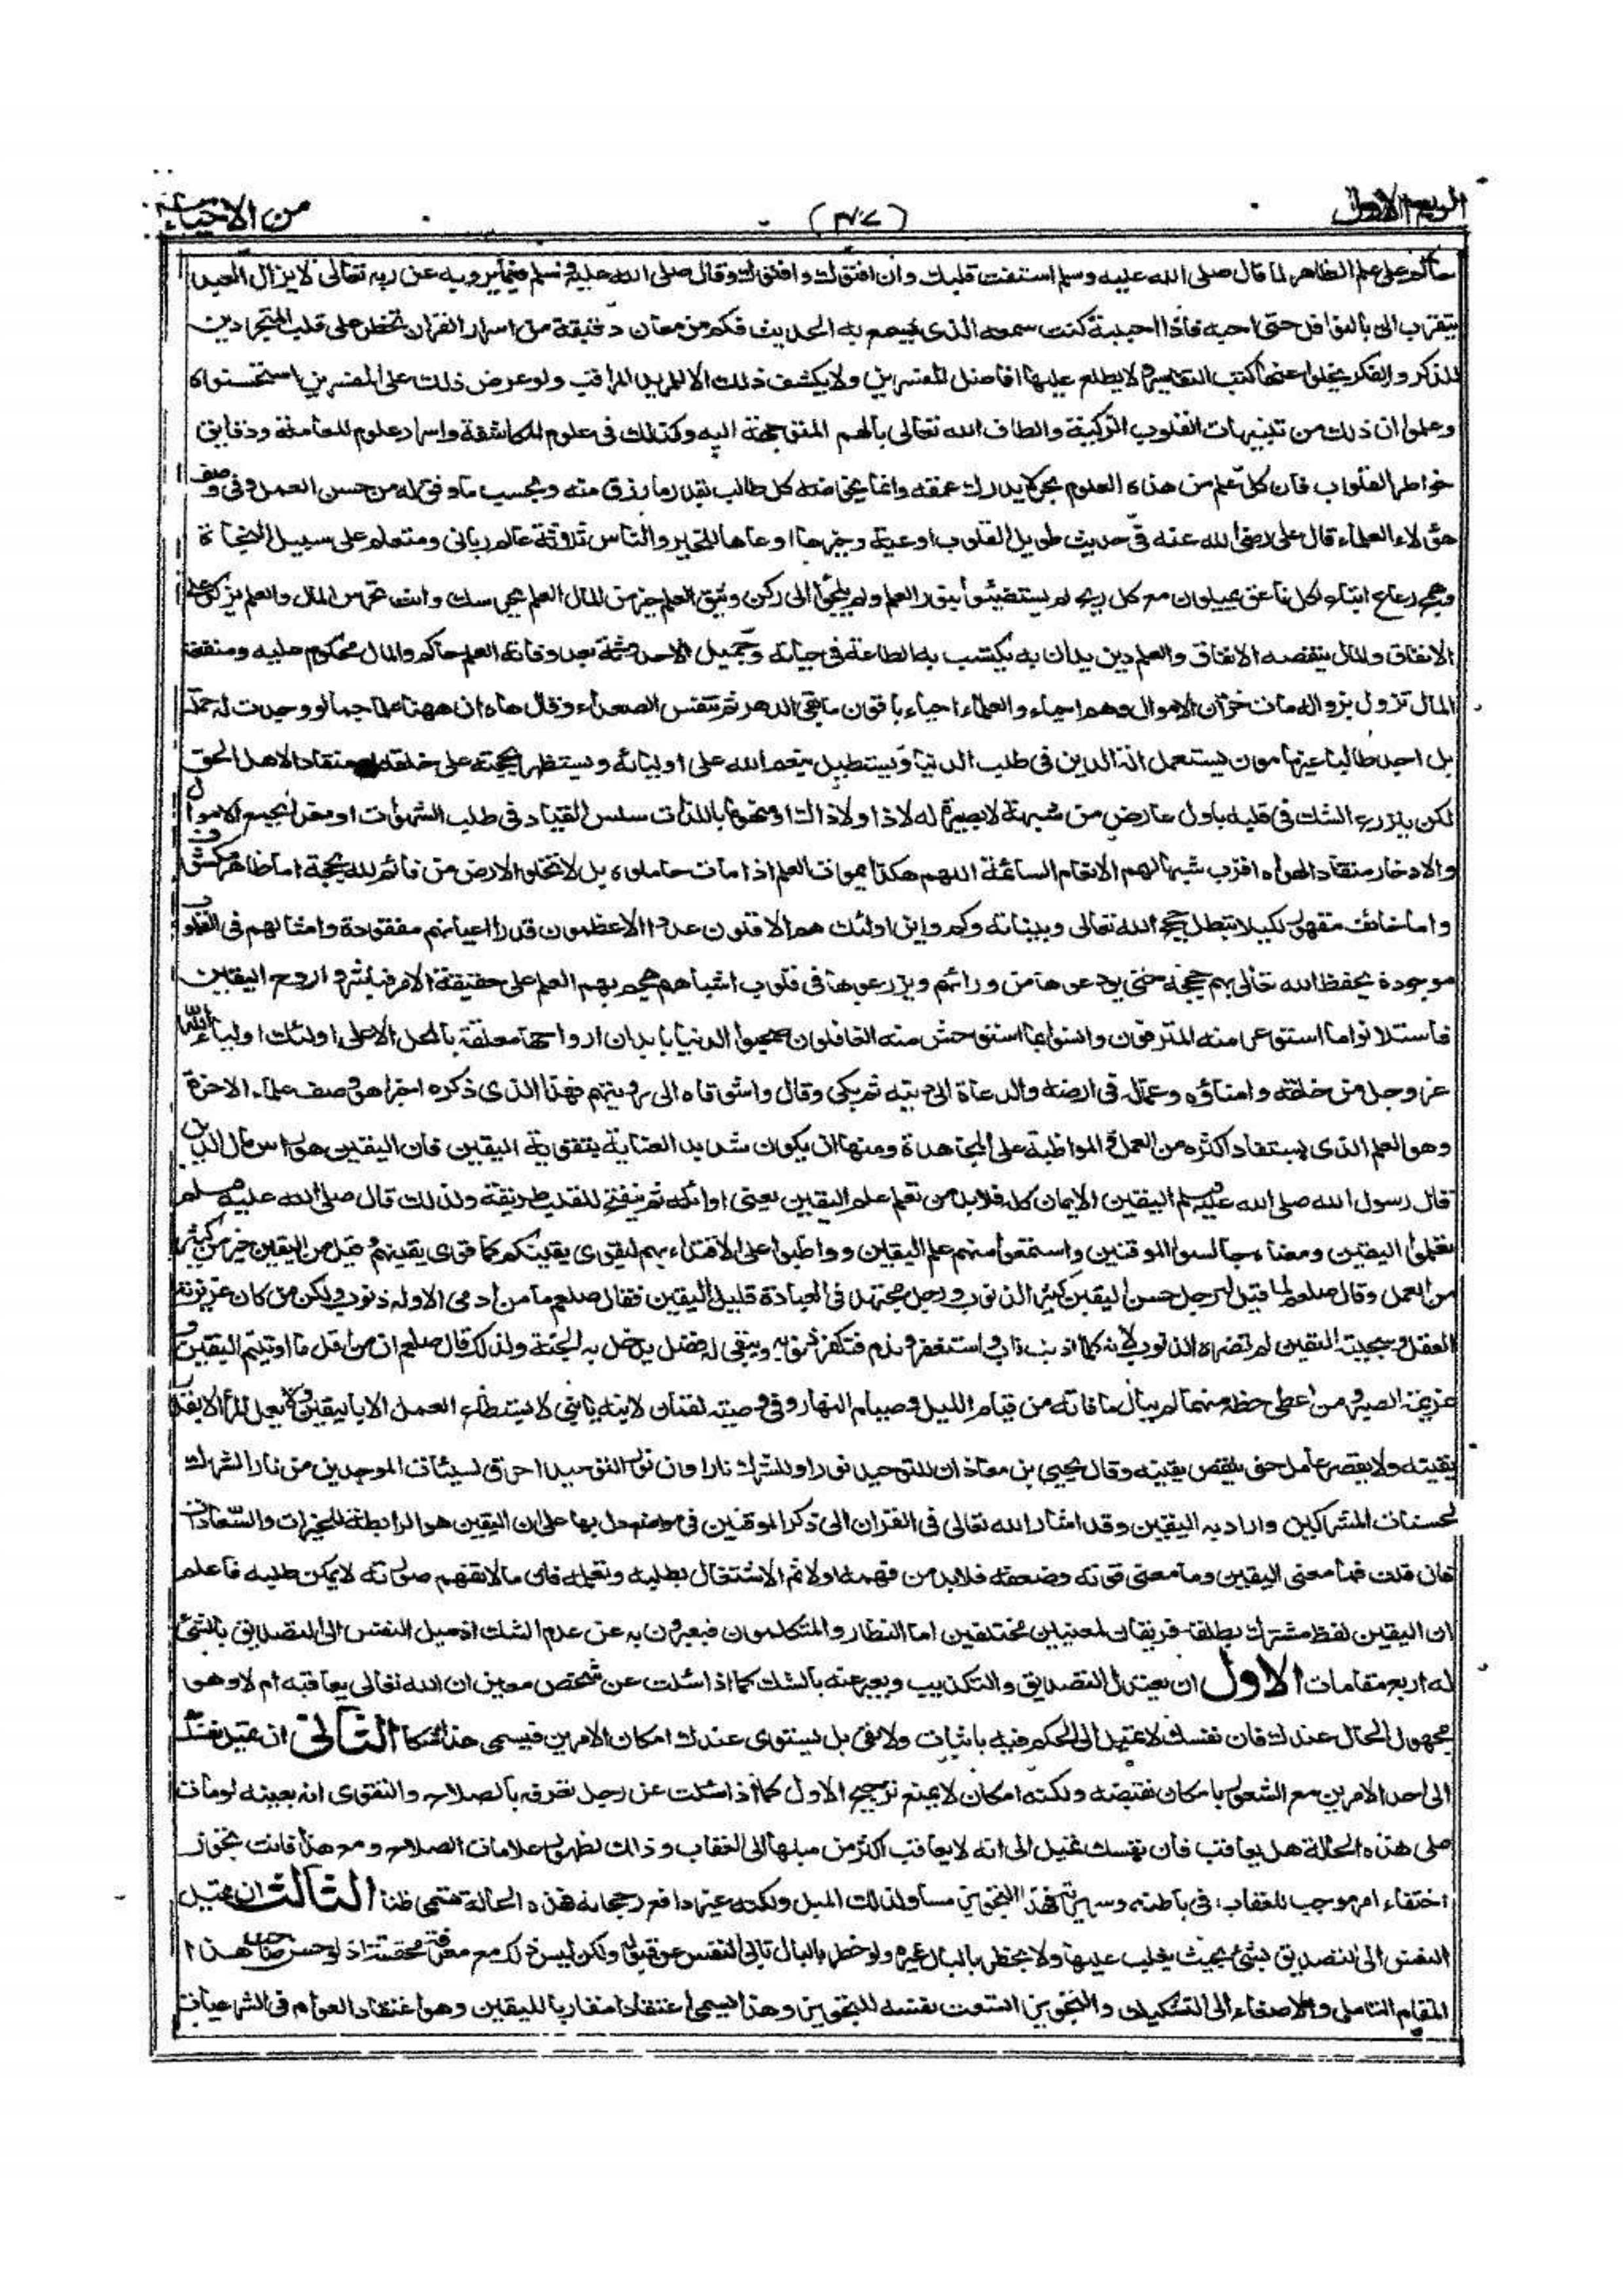 الربع الاول
من الاحياء
حاكم على علم الظاهر لما قال صلى الله عليه وسلم استفت قلبك وان افتوك وافتوك وافتوك وقال صلى الله عليه وسلم فيما يرويه عن ربه تعالى لا يزال العبد
يتقرب الى بالنوافل حتى احبه فاذا احببته كنت سمعه الذى يسمع به الحديث فكم من معان دقيقة من اسرار القران تخطر على قلب المتجردين
للذكر والفكر يخلوا عنها كتب التفاسير لا يطلع عليها افاضل المفسرين ولا يكشف ذلك الا للمريد المراقب ولو عرض ذلك على المفسرين استحسنواه
وعلموا ان ذلك من تنبيهات القلوب الزكية والطاف الله تعالى بالهمم المتوجهة اليه وكذلك فى علوم المكاشفة واسرار علوم المعاملة ودقايق
خواطر القلوب فان كل علم من هذه العلوم بحر لا يدرك عمقه وانما يخاضه كل طالب بقدر ما رزق منه وبحسب ما وفق له من حسن العمل وفى وصف
هؤلاء العلماء قال على رضى الله عنه فى حديث طويل القلوب اوعية وخيرها اوعاها للخير والناس ثلاثة عالم ربانى ومتعلم على سبيل النجاة
وهمج رعاع اتباع لكل ناعق يميلون مع كل ريح لم يستضيئوا بنور العلم ولم يلجئوا الى ركن وثيق العلم خير من المال العلم يحرسك وانت تحرس المال والعلم يزكو على
الانفاق والمال ينقصه الانفاق والعلم دين يدان به يكتسب به الطاعة فى حياته وجميل الاحدوثة بعد وفاته العلم حاكم والمال محكوم عليه ومنفعة
المال تزول بزواله مات خزان الاموال وهم احياء والعلماء احياء باقون ما بقى الدهر ثم تنفس الصعداء وقال هاه ان ههنا علما جما لو وجدت له حملة
بل اجد طالبا غير مامون يستعمل الة الدين فى طلب الدنيا ويستطيل بنعم الله على اوليائه ويستظهر بحجته على خلقه او منقادا لاهل الحق
لكن يزرع الشك فى قلبه باول عارض من شبهة لا بصيرة له لا ذا ولا ذاك او منهوما باللذات سلس القياد فى طلب الشهوات او مغرا بجمع الاموال
والادخار منقاد الهواه اقرب شبها لهم الانعام السائمة اللهم هكذا يموت العلم اذا مات حاملوه بل لا تخلو الارض من قائم لله بحجة اما ظاهر مكشوف
واما خائف مقهور لكيلا تبطل حجج الله تعالى وبيناته وكم واين اولئك هم الاقلون عددا الاعظمون قدرا اعيانهم مفقودة وامثالهم فى القلوب
موجودة يحفظ الله تعالى بهم حججه حتى يودعوها من ورائهم ويزرعوها فى قلوب اشباههم هجم بهم العلم على حقيقة الامر فباشروا روح اليقين
فاستلانوا ما استوعر منه المترفون وانسوا بما استوحش منه الغافلون صحبوا الدنيا بابدان ارواحها معلقة بالمحل الاعلى اولئك اولياء الله
عز وجل من خلقه وامناؤه وعماله فى ارضه والدعاة الى دينه ثم بكى وقال واشوقاه الى رؤيتهم فهذا الذى ذكره اخيرا هو وصف علماء الاخرة
وهو العلم الذى يستفاد اكثره من العمل والمواظبة على المجاهدة ومنها ان يكون شديد العناية بتقوية اليقين فان اليقين هو راس مال الدين
قال رسول الله صلى الله عليه وسلم اليقين الايمان كله فلابد من تعلم علم اليقين يعنى اوائله ثم ينفتح للقلب طريقه ولذلك قال صلى الله عليه وسلم
تعلموا اليقين ومعناه جالسوا الموقنين واستمعوا منهم علم اليقين وواظبوا على الاقتداء بهم ليقوى يقينكم كما قوى يقينهم وقليل من اليقين خير من كثير
من العمل وقال صلعم لما قيل له رجل حسن اليقين كثير الذنوب ورجل مجتهد فى العبادة قليل اليقين فقال صلعم ما من ادمى الا وله ذنوب ولكن من كان غريزته
العقل وسجيته اليقين لم تضره الذنوب لانه كلما اذنب تاب واستغفر وندم فتكفر ذنوبه ويبقى له فضل يدخل به الجنة ولذلك قال صلعم ان من اقل ما اوتيتم اليقين و
عزيمة الصبر ومن اعطى حظه منهما لم يبال ما فاته من قيام الليل وصيام النهار وفى وصية لقمان لابنه يا بنى لا يستطاع العمل الا باليقين ولا يعمل المرء الا بقدر
يقينه ولا يقصر عامل حتى ينقص يقينه وقال يحيى بن معاذ ان للتوحيد نورا وللشرك نارا وان نور التوحيد احرق لسيئات الموحدين من نار الشرك
لحسنات المشركين واراد به اليقين وقد اشار الله تعالى فى القران الى ذكر الموقنين فى مواضع دل بها على ان اليقين هو الرابطة للخيرات والسعادات
فان قلت فما معنى اليقين وما معنى قوته وضعفه فلابد من فهمه اولا ثم الاشتغال بطلبه وتعلمه فان ما لا تفهم صورته لا يمكن طلبه فاعلم
ان اليقين لفظ مشترك يطلقه فريقان لمعنيين مختلفين اما النظار والمتكلمون فيعبرون به عن عدم الشك اذ ميل النفس الى التصديق بالشئ
له اربع مقامات الاول ان يعتدل التصديق والتكذيب ويعبر عنه بالشك كما اذا سئلت عن شخص معين ان الله تعالى يعاقبه ام لا وهو
مجهول الحال عندك فان نفسك لا تميل الى الحكم فيه باثبات ولا نفى بل يستوى عندك امكان الامرين فيسمى هذا شكا الثانى ان تميل نفسك
الى احد الامرين مع الشعور بامكان نقيضه ولكنه امكان لا يمنع ترجيح الاول كما اذا سئلت عن رجل تعرفه بالصلاح والتقوى انه بعينه لو مات
على هذه الحالة هل يعاقب فان نفسك تميل الى انه لا يعاقب اكثر من ميلها الى العقاب وذلك لظهور علامات الصلاح ومع هذا فانت تجوز
اختفاء امر موجب للعقاب فى باطنه وسريرته فهذا التجويز مساو لذلك الميل ولكنه غير دافع رجحانه فهذه الحالة تسمى ظنا الثالث ان تميل
النفس الى التصديق بشئ بحيث يغلب عليها ولا يخطر بالبال غيره ولو خطر بالبال تابى النفس عن قبوله ولكن ليس ذلك مع معرفة محققة اذ لو احسن صاحب هذا
المقام التامل والاصغاء الى التشكيك والتجويز اتسعت نفسه للتجويز وهذا يسمى اعتقادا مقاربا لليقين وهو اعتقاد العوام فى الشرعيات